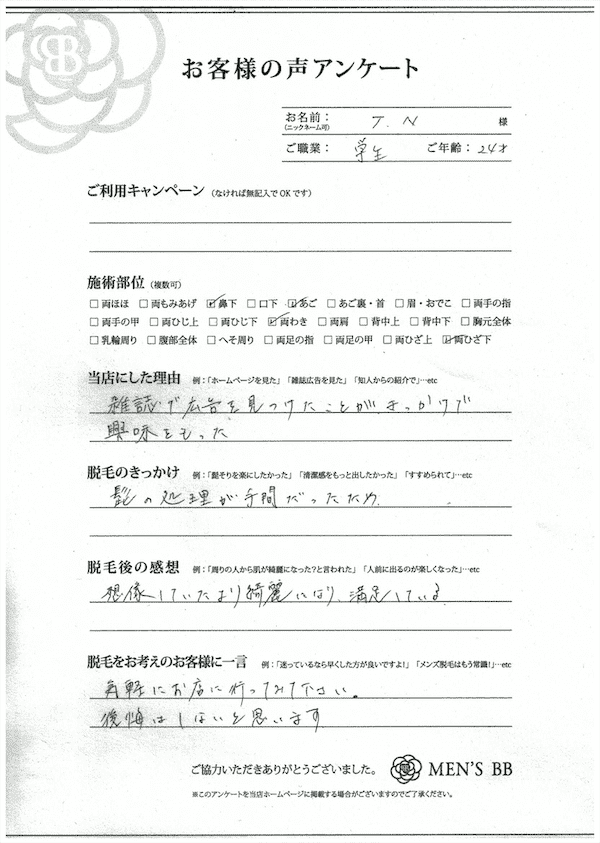 BB
お客様の声アンケート
お名前：
(ニックネーム可) T.N 様
ご職業： 学生 ご年齢：24才
ご利用キャンペーン（なければ無記入でOKです）
施術部位（複数可）
□両ほほ □両もみあげ ☑鼻下 □口下 ☑あご □あご裏・首 □眉・おでこ □両手の指
□両手の甲 □両ひじ上 □両ひじ下 ☑両わき □両肩 □背中上 □背中下 □胸元全体
□乳輪周り □腹部全体 □へそ周り □両足の指 □両足の甲 □両ひざ上 ☑両ひざ下
当店にした理由 例：「ホームページを見た」「雑誌広告を見た」「知人からの紹介で」…etc
雑誌で広告を見つけたことがきっかけで
興味をもった
脱毛のきっかけ 例：「髭そりを楽にしたかった」「清潔感をもっと出したかった」「すすめられて」…etc
髭の処理が手間だったため
脱毛後の感想 例：「周りの人から肌が綺麗になった?と言われた」「人前に出るのが楽しくなった」…etc
想像していたより綺麗になり、満足している
脱毛をお考えのお客様に一言 例：「迷っているなら早くした方が良いですよ!」「メンズ脱毛はもう常識!」…etc
気軽にお店に行ってみて下さい。
後悔はしないと思います
ご協力いただきありがとうございました。 MEN'S BB
※このアンケートを当店ホームページに掲載する場合がございますのでご了承ください。